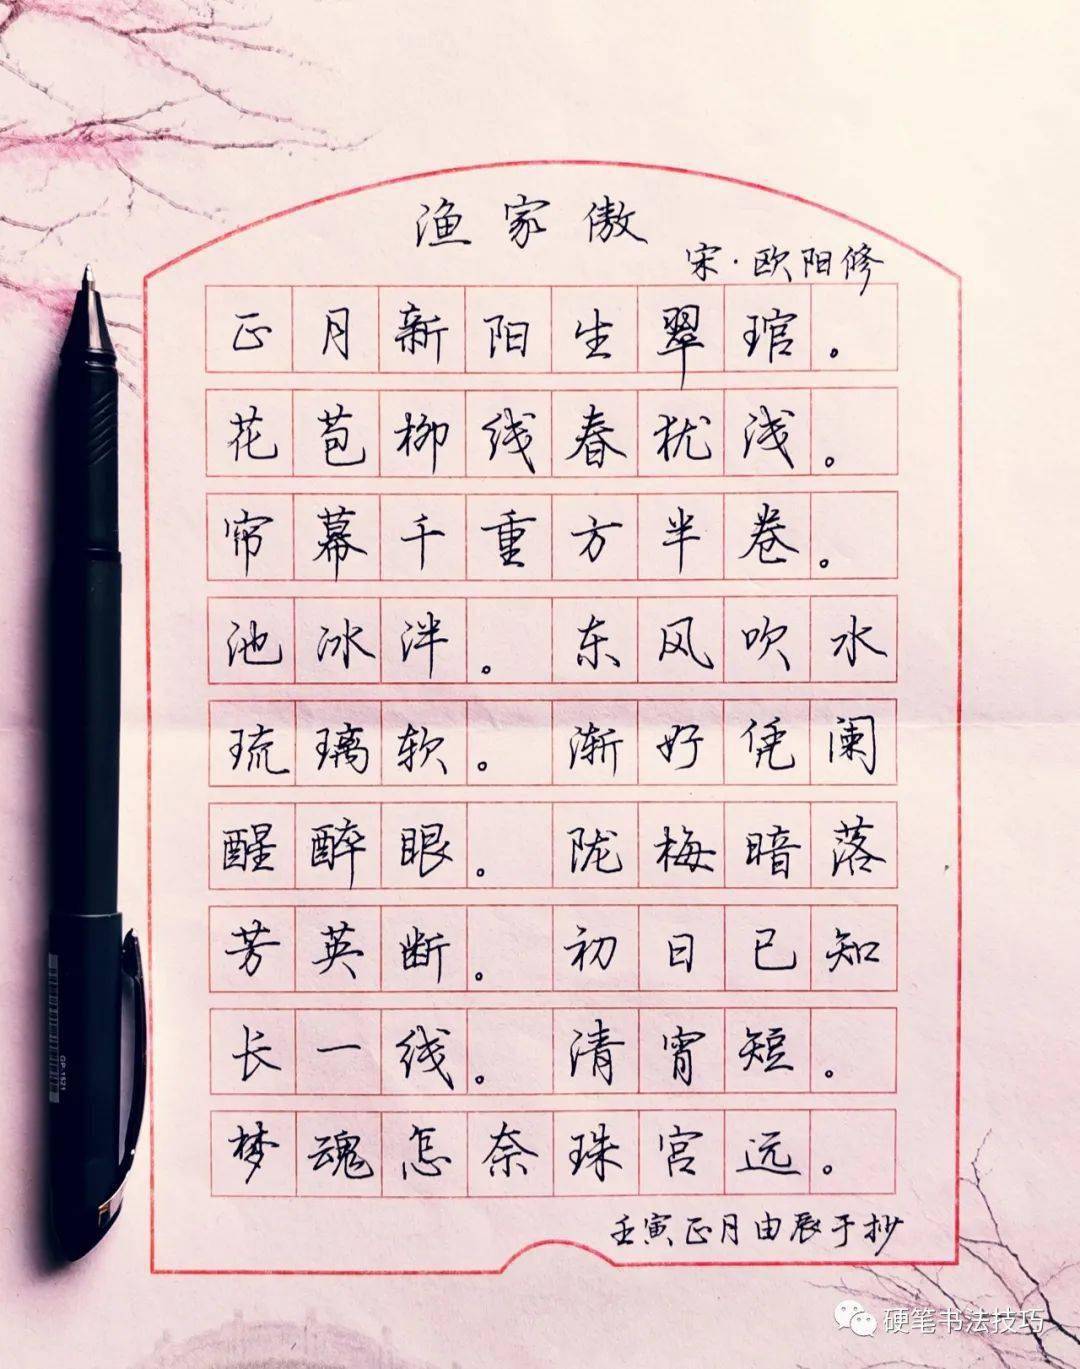 渔家傲
宋·欧阳修
正月新阳生翠琯。
花苞柳线春犹浅。
帘幕千重方半卷。
池冰泮。东风吹水
琉璃软。渐好凭阑
醒醉眼。陇梅暗落
芳英断。初日已知
长一线。清宵短。
梦魂怎奈珠宫远。
壬寅正月由辰于抄
GP-1521
硬笔书法技巧